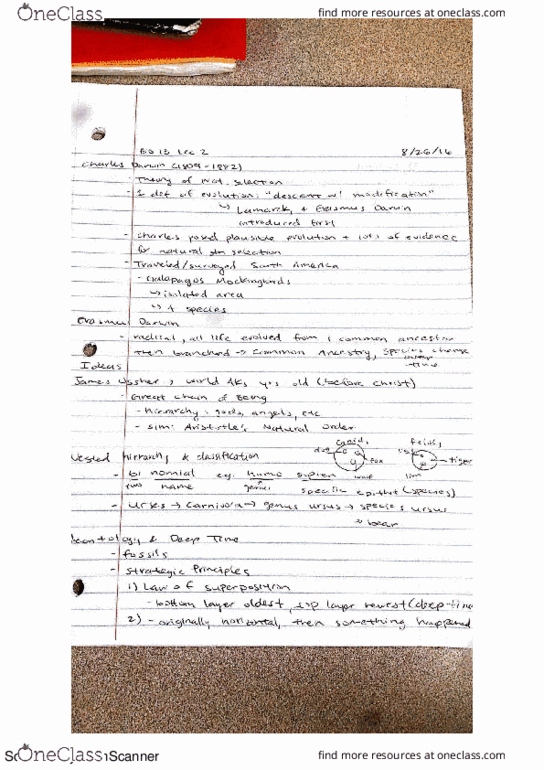 OneClass
find more resources at oneclass.com
Bio 13 Lec 2 8/26/16
Charles Darwin (1809-1882)
- Theory of Nat. Selection
- 1 def of evolution: "descent w/ modification"
↳ Lamarck, + Erasmus Darwin
introduced first
- Charles posed plausible evolution + lots of evidence
for natural selection
- Traveled/surveyed South America
- Galapagos Mockingbirds
↳ isolated area
↳ 4 species
Erasmus Darwin
- radical, all life evolved from 1 common ancestor
then branched → Common Ancestry, Species change
time
Ideas
James Ussher → world 4K yrs old (before christ)
- Great Chain of Being
- hierarchy: gods, angels, etc
- sim: Aristotle's Natural Order
canids felids
Nested hierarchy & classification dog fox tiger
wolf lion
- binomial eg. homo sapien
two name genus specific epithet (species)
- Urses → Carnivora → genus ursus → species ursus
bear
leontology & Deep Time
- fossils
- Strategic Principles
1) Law of superposition
- bottom layer oldest, top layer newest (deep-time
2) - originally horizontal, then something happened
OneClass
Scanner
find more resources at oneclass.com